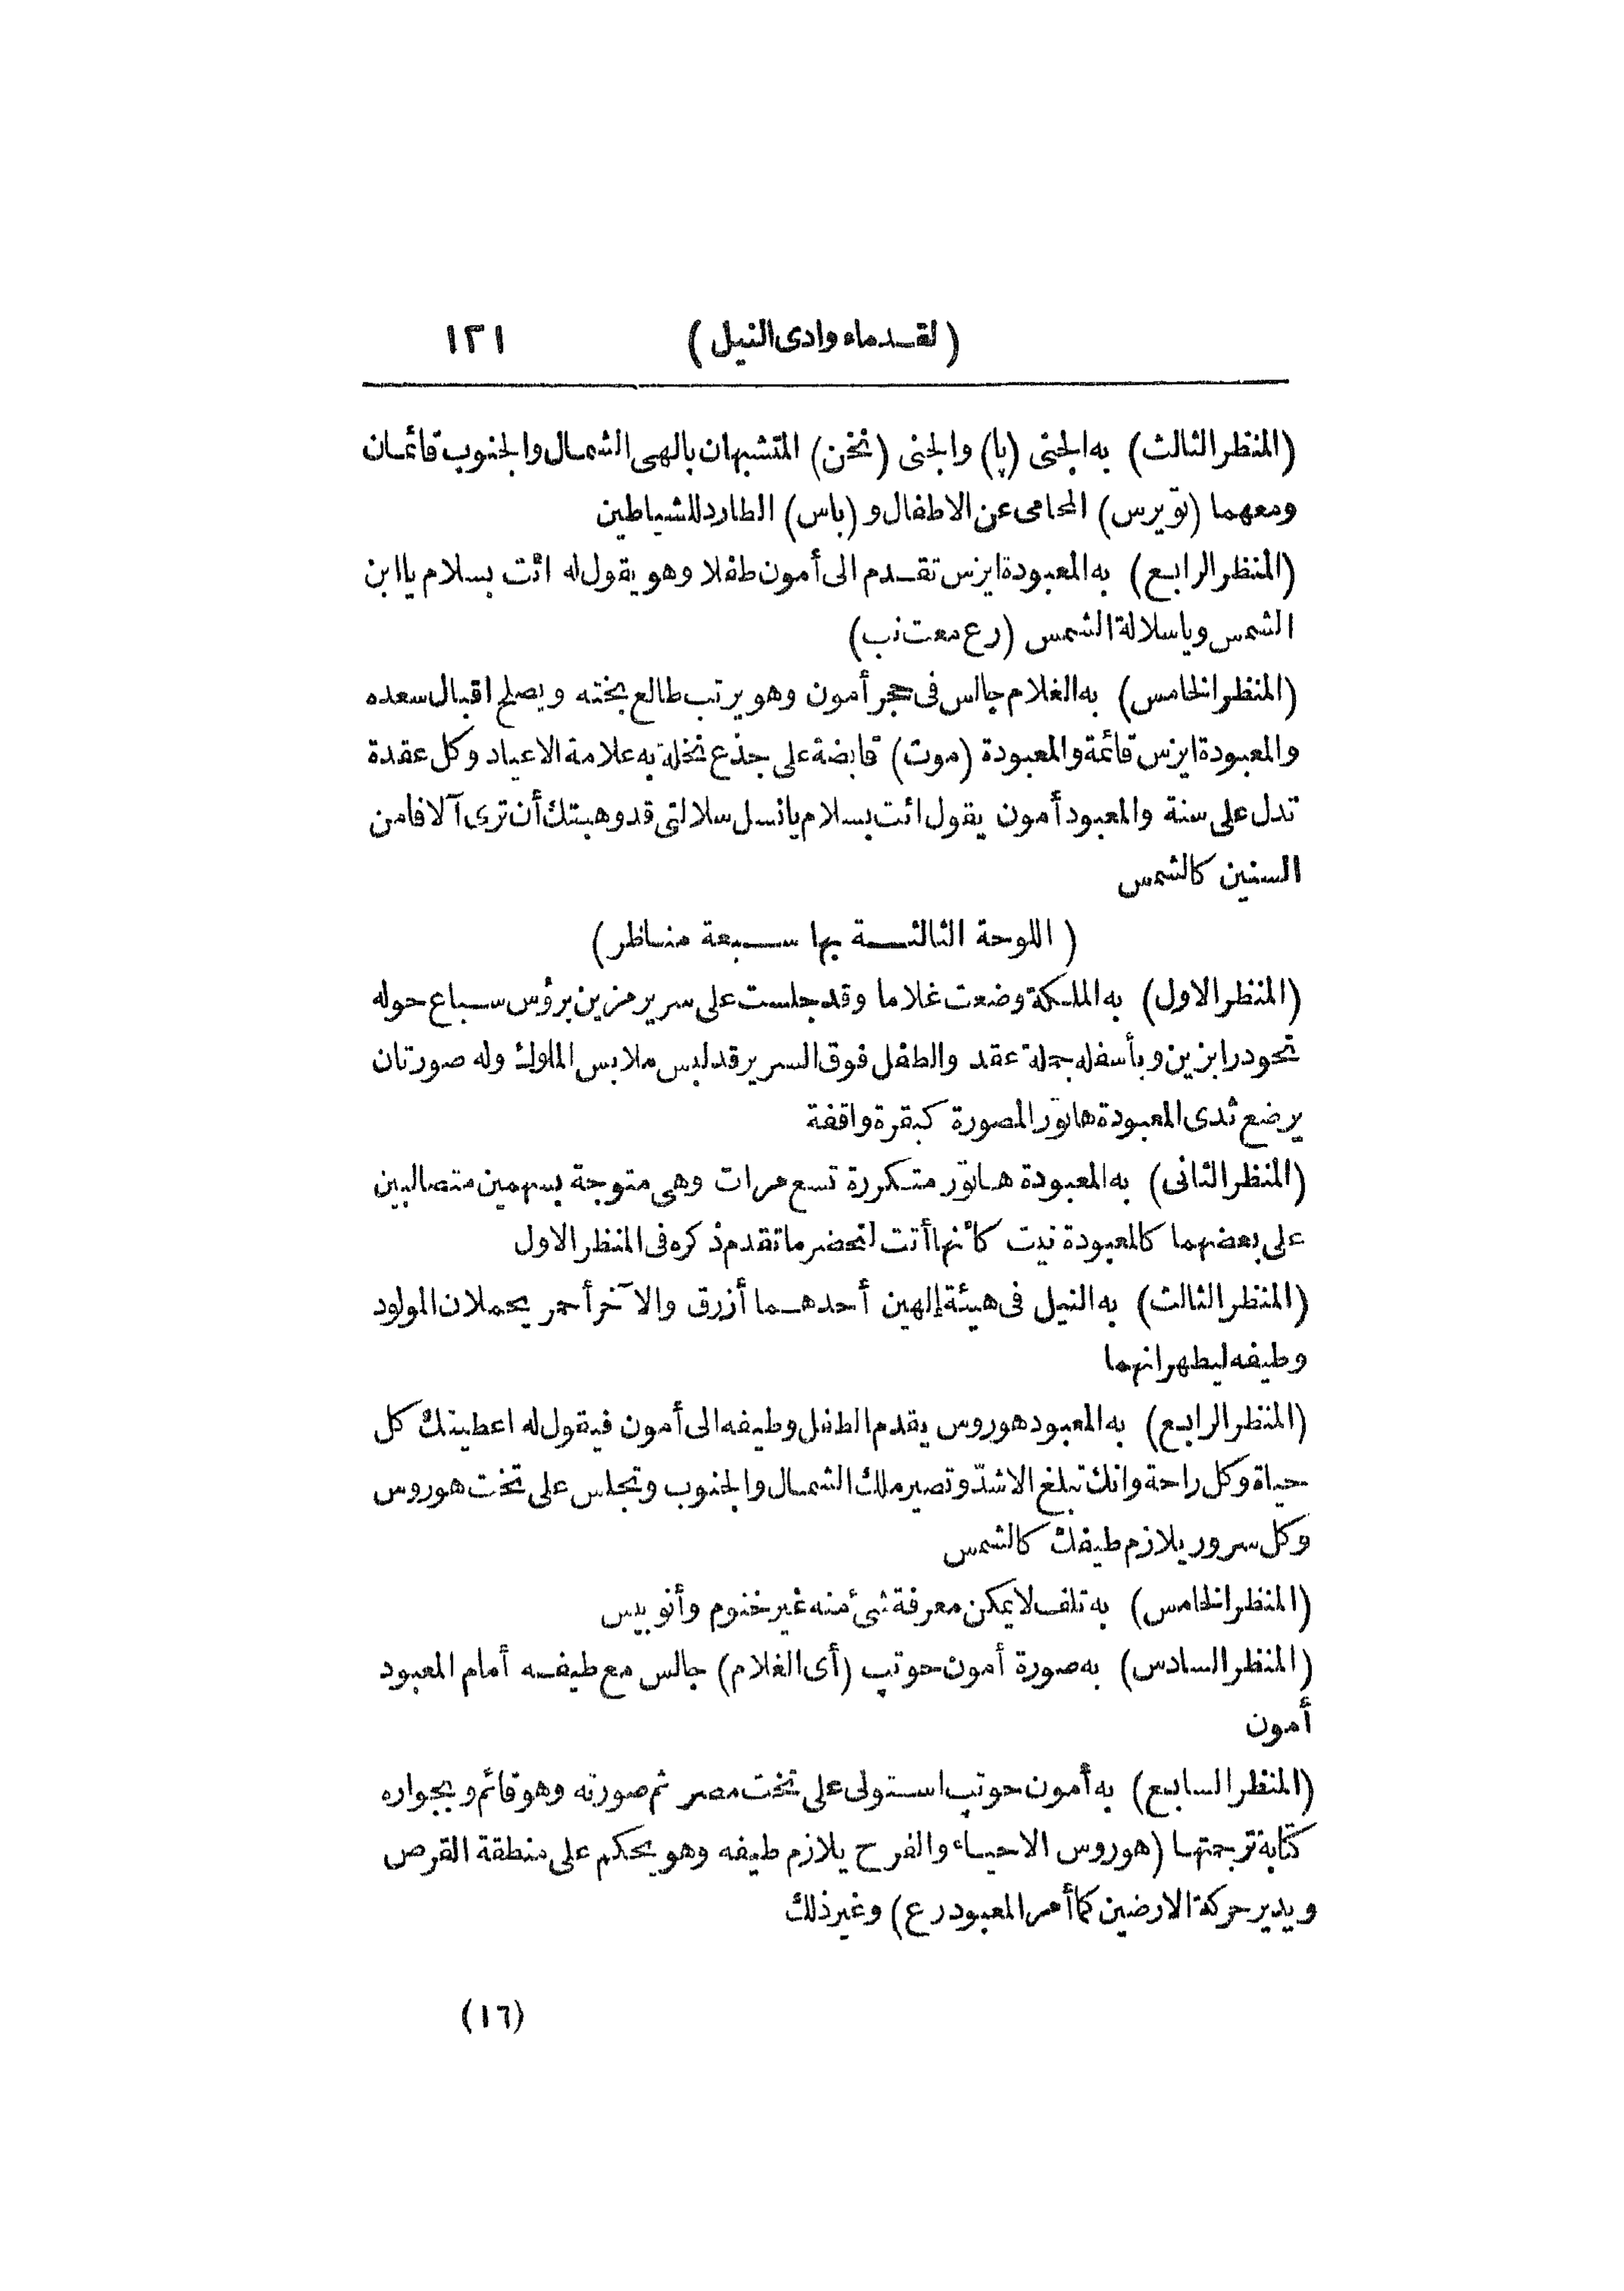 (لقدماء وادى النيل) ١٢١
(المنظر الثالث) به الجنى (پا) والجنى (نخن) المتشبهان بالهى الشمال والجنوب قائمان
ومعهما (تويرس) المحامى عن الاطفال و (باس) الطارد للشياطين
(المنظر الرابع) به المعبودة ايزس تقدم الى أمون طفلا وهو يقول له ائت بسلام يا ابن
الشمس ويا سلالة الشمس (رع معت نب)
(المنظر الخامس) به الغلام جالس فى حجر أمون وهو يرتب طالع بخته ويصلح اقبال سعده
والمعبودة ايزس قائمة والمعبودة (موت) قابضة على جذع نخلة به علامة الاعياد وكل عقدة
تدل على سنة والمعبود أمون يقول ائت بسلام يا نسل سلالتى قد وهبتك أن ترى آلافا من
السنين كالشمس
(اللوحة الثالثة بها سبعة مناظر)
(المنظر الاول) به الملكة وضعت غلاما وقد جلست على سرير مزين برؤس سباع حوله
نحو درابزين وبأسفله جملة عقد والطفل فوق السرير قد لبس ملابس الملوك وله صورتان
يرضع ثدى المعبودة هاتور المصورة كبقرة واقفة
(المنظر الثانى) به المعبودة هاتور متكررة تسع مرات وهى متوجة بسهمين متصالبين
على بعضهما كالمعبودة نيت كأنها أتت لتحضر ما تقدم ذكره فى المنظر الاول
(المنظر الثالث) به النيل فى هيئة إلهين أحدهما أزرق والآخر أحمر يحملان المولود
وطيفه ليطهرانهما
(المنظر الرابع) به المعبود هوروس يقدم الطفل وطيفه الى أمون فيقول له اعطيتك كل
حياة وكل راحة وانك تبلغ الاشدّ وتصير ملك الشمال والجنوب وتجلس على تخت هوروس
وكل سرور يلازم طيفك كالشمس
(المنظر الخامس) به تلف لا يمكن معرفة شئ منه غير خنوم وأنوبيس
(المنظر السادس) به صورة أمون حوتپ (أى الغلام) جالس مع طيفه أمام المعبود
أمون
(المنظر السابع) به أمون حوتپ استولى على تخت مصر ثم صورته وهو قائم وبجواره
كتابة ترجمتها (هوروس الاحياء والفرح يلازم طيفه وهو يحكم على منطقة القرص
ويدير حركة الارضين كما أمر المعبود رع) وغير ذلك
(١٦)